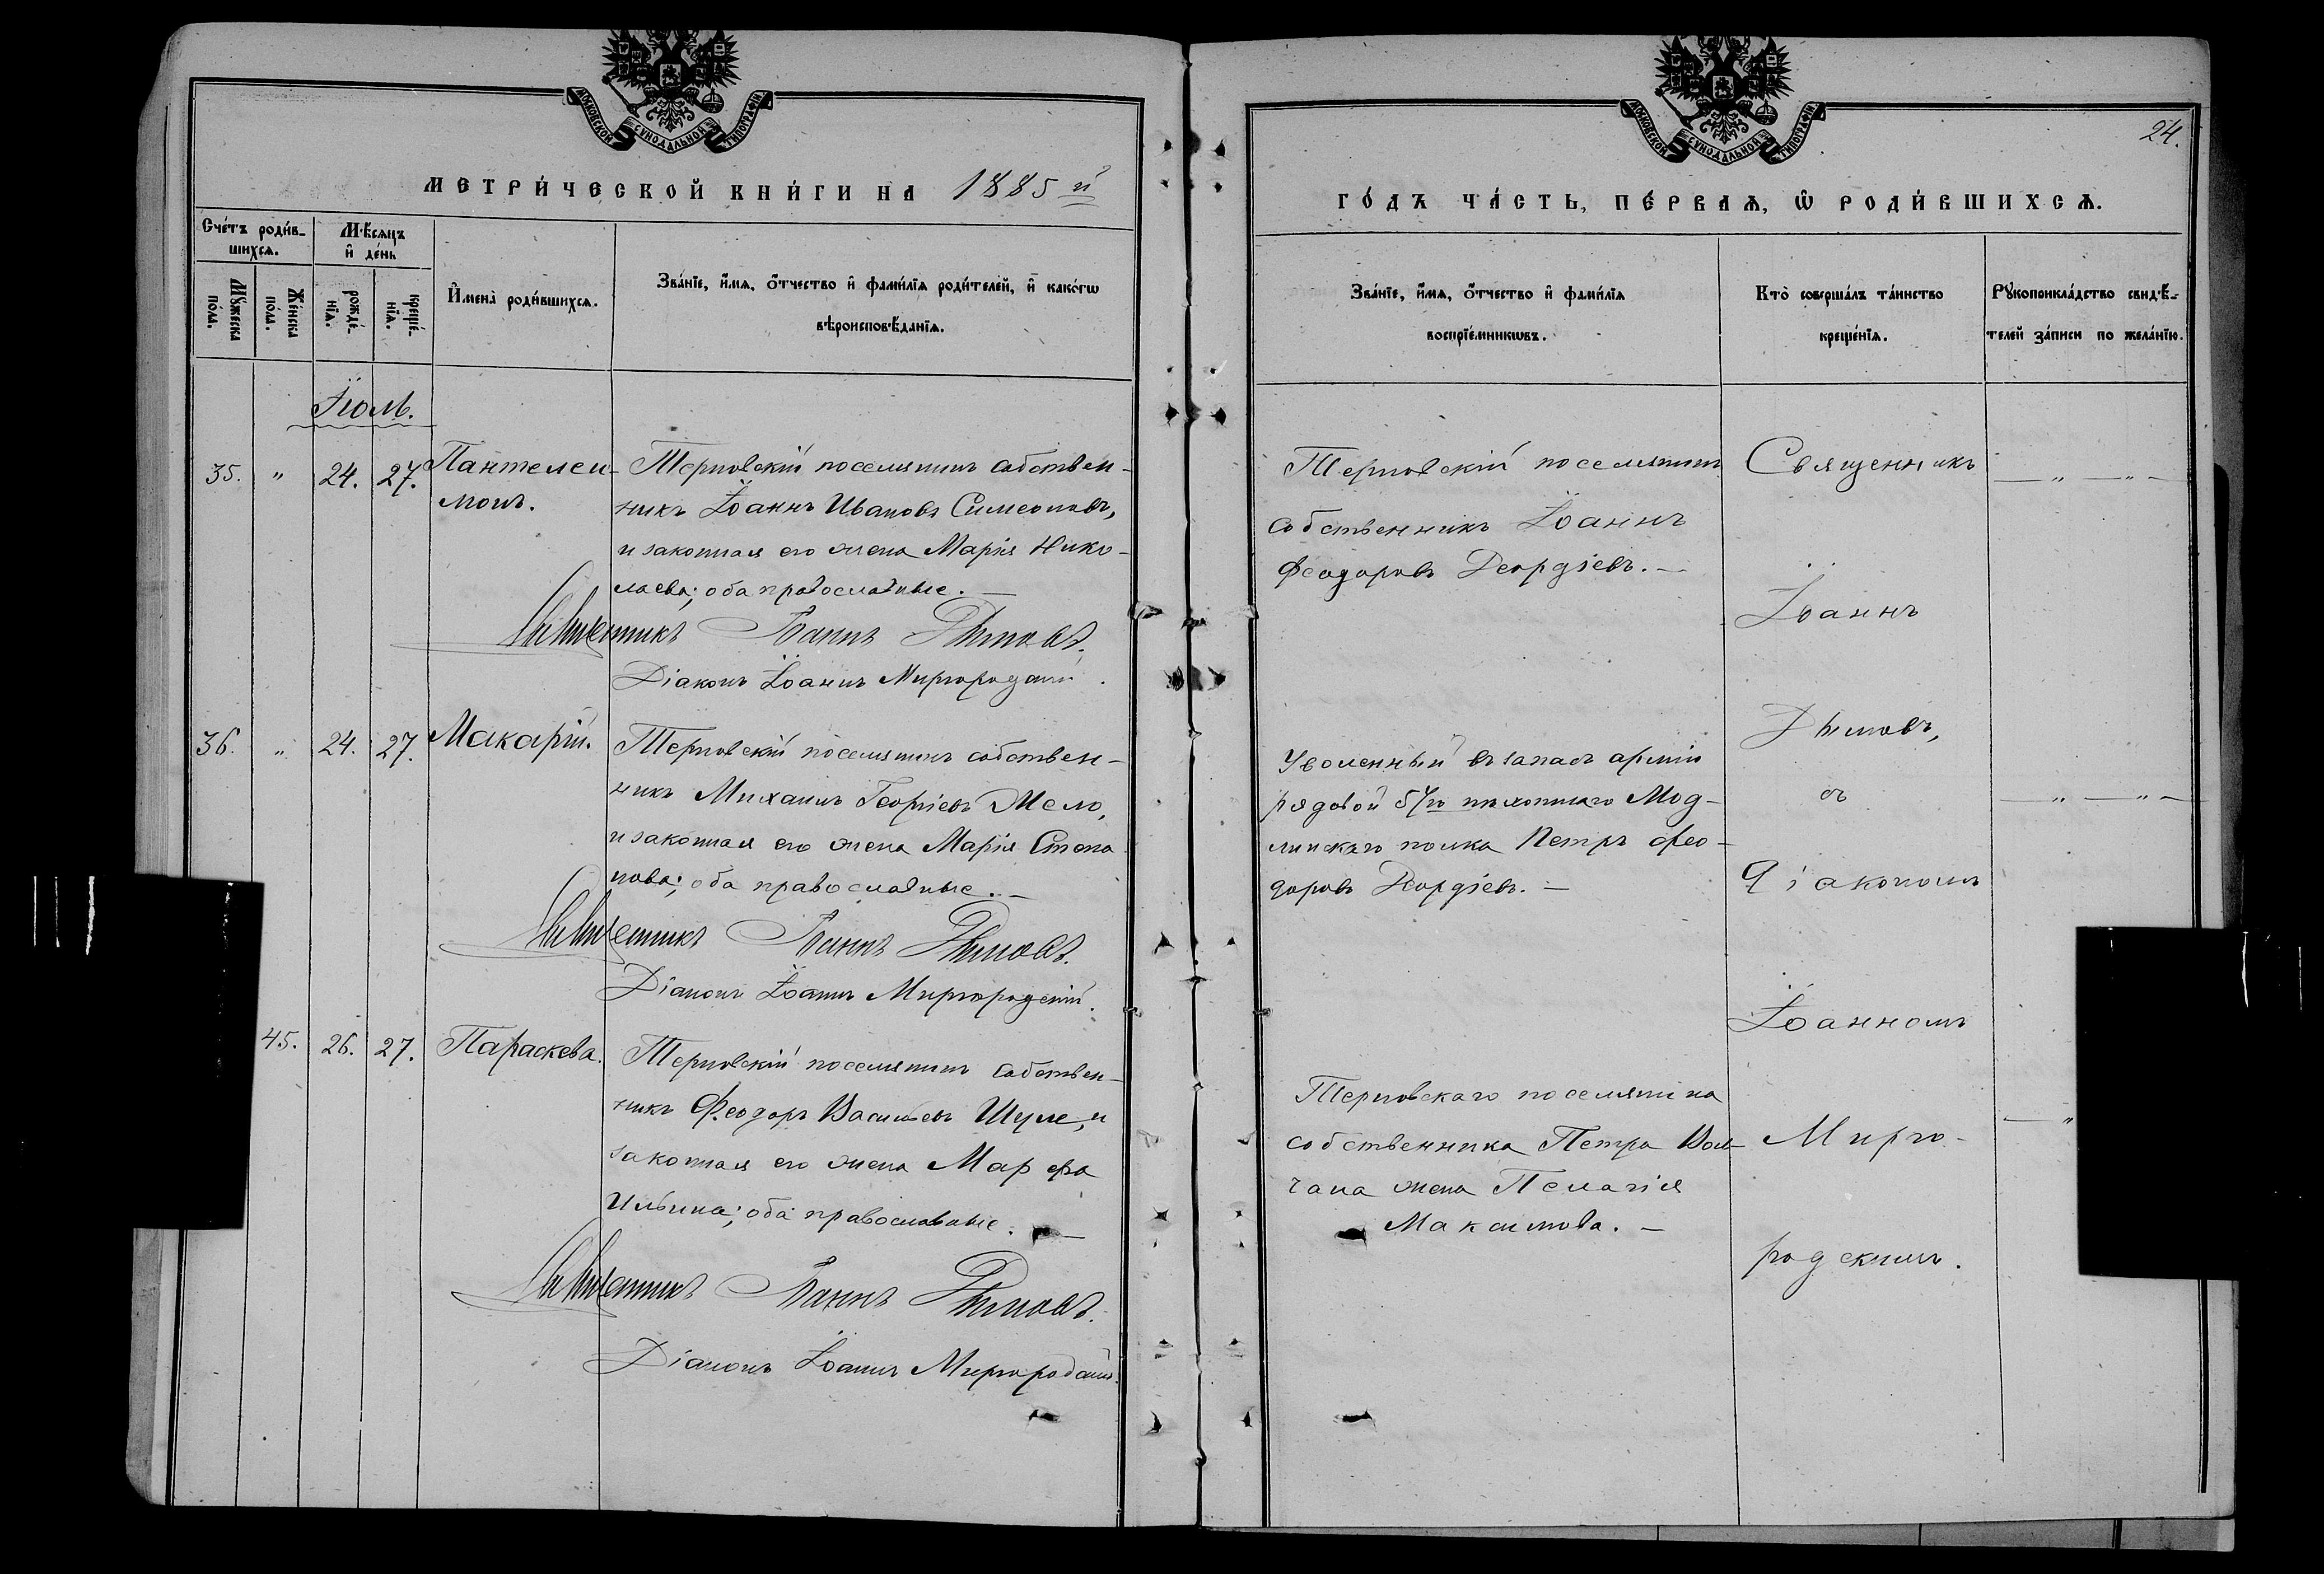 МОСКОВСКОЙ СУНОДАЛЬНОЙ ТИПОГРАФІИ
МЕТРИ́ЧЕСКОЙ КНИ́ГИ НА 1885 й
Сче́тъ роди́в-
шихсѧ.
Мѣ́сѧцъ
и҆ де́нь
Мꙋ́жеска
по́ла.
Же́нска
по́ла.
рожде́-
нїѧ.
креще́-
нїѧ.
И҆мена̀ роди́вшихсѧ.
Зва́нїе, и҆́мѧ, ѻ҆́тчество и҆ фами́лїѧ роди́телей, и҆ како́гѡ
вѣроисповѣ́данїѧ.
Іюль.
35. " 24. 27. Пантелеи-
монъ.
Терновскій поселянинъ собствен-
никъ Іоаннъ Ивановъ Симеоновъ,
и законная его жена Марія Нико-
лаева; оба православные. —
Священникъ Іоаннъ Дымовъ.
Діаконъ Іоаннъ Миргородскій.
36. " 24. 27. Макарій.
Терновскій поселянинъ собствен-
никъ Михаилъ Георгіевъ Жело,
и законная его жена Марія Степа
нова; оба православные. —
Священникъ Іоаннъ Дымовъ.
Діаконъ Іоаннъ Миргородскій.
45. 26. 27. Параскева.
Терновскій поселянинъ собствен-
никъ Феодоръ Васильевъ Шуле, и
законная его жена Марфа
Ильина; оба православные. —
Священникъ Іоаннъ Дымовъ.
Діаконъ Іоаннъ Миргородскій.
МОСКОВСКОЙ СУНОДАЛЬНОЙ ТИПОГРАФІИ
24.
ГО́ДЪ ЧА́СТЬ, ПЕ́РВАѦ, Ѡ҆ РОДИ́ВШИХСѦ.
Зва́нїе, и҆́мѧ, ѻ҆́тчество и҆ фами́лїѧ
воспрїе́мникѡвъ.
Кто̀ соверша́лъ та́инство
креще́нїѧ.
Рꙋкоприкла́дство свидѣ́-
телей за́писи по жела́нїю.
Терновскій поселянинъ
собственникъ Іоаннъ
Феодоровъ Деордіевъ. —
Уволенный въ запасъ арміи
рядовой 57го пѣхотнаго Мод-
линскаго полка Петръ Фео-
доровъ Деордіевъ. —
Терновскаго поселянина
собственника Петра Вол-
чана жена Пелагія
Максимова. —
Священникъ
Іоаннъ
Дымовъ,
съ
Діакономъ
Іоанномъ
Мирго-
родскимъ.
— " — " —
— " — " —
— "